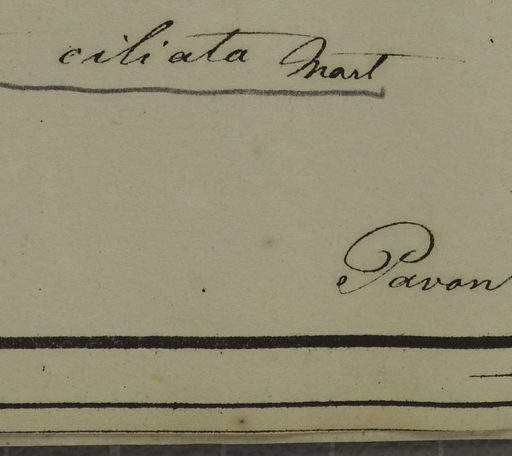 ciliata Mart
Pavon